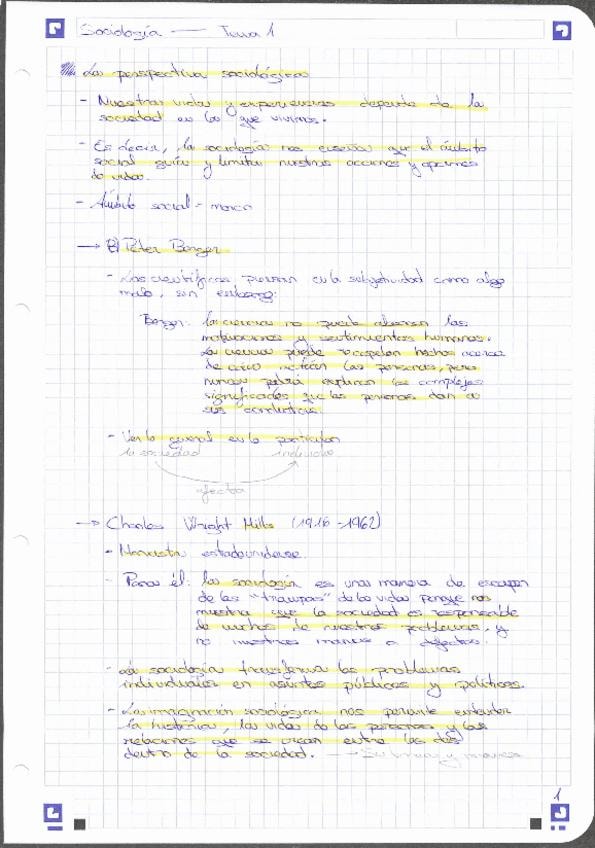 Sociología — Tema 1
La perspectiva sociológica
- Nuestras vidas y experiencias depende de la
sociedad en la que vivimos.
- Es decir, la sociología nos enseña que el ámbito
social guía y limita nuestras acciones y opciones
de vida.
- Ámbito social = marco
→ Peter Berger
- Los científicos piensan en la subjetividad como algo
malo, sin embargo:
Berger: la ciencia no puede abarcar las
motivaciones y sentimientos humanos.
La ciencia puede recopilar hechos acerca
de cómo actúan las personas, pero
nunca podrá explicar los complejos
significados que las personas dan a
sus conductas.
- Ver lo general en lo particular
la sociedad individuo
afecta
→ Charles Wright Mills (1916-1962)
- Marxista estadounidense.
- Para él: la sociología es una manera de escapar
de las "trampas" de la vida porque nos
muestra que la sociedad es responsable
de muchos de nuestros problemas, y
no nuestras manías o defectos.
- La sociología transforma los problemas
individuales en asuntos públicos y políticos.
- La imaginación sociológica nos permite entender
la historia, las vidas de las personas y las
relaciones que se crean entre las dos
dentro de la sociedad. →
1